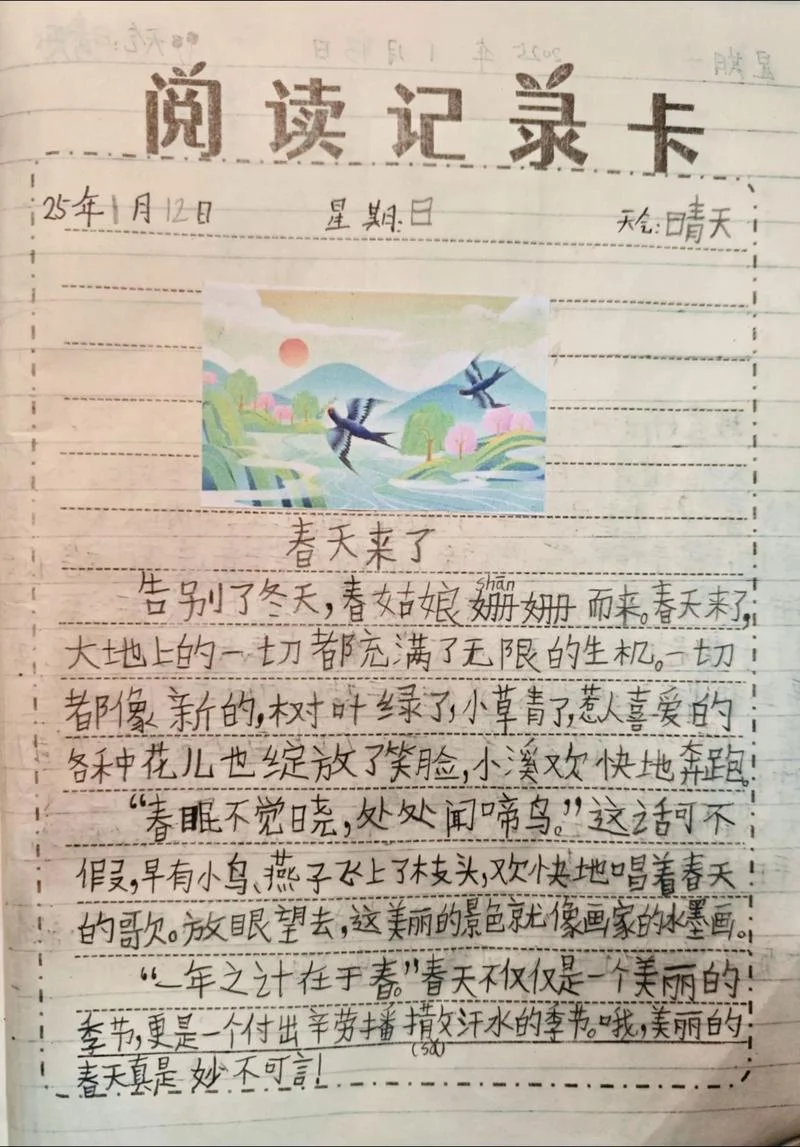 阅读记录卡
25年1月12日 星期:日 天气:晴天
春天来了
shān
告别了冬天,春姑娘姗姗而来。春天来了,
大地上的一切都充满了无限的生机。一切
都像新的,树叶绿了,小草青了,惹人喜爱的
各种花儿也绽放了笑脸,小溪欢快地奔跑。
“春眠不觉晓,处处闻啼鸟。”这话可不
假,早有小鸟、燕子飞上了枝头,欢快地唱着春天
的歌。放眼望去,这美丽的景色就像画家的水墨画。
“一年之计在于春。”春天不仅仅是一个美丽的
季节,更是一个付出辛劳播撒汗水的季节。哦,美丽的
春天真是妙不可言!